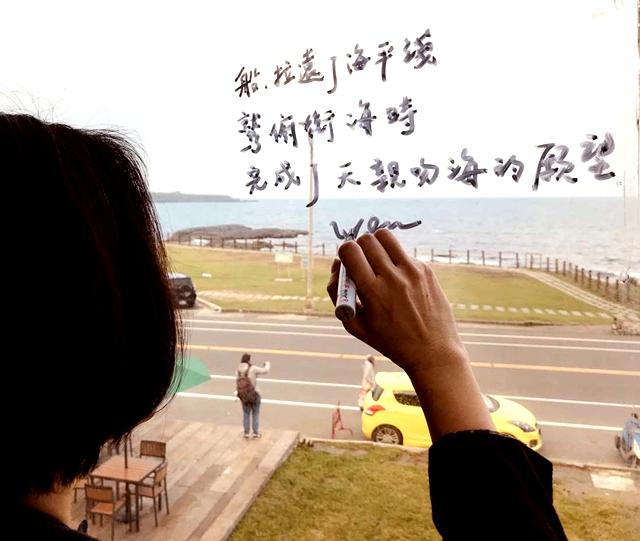 船.拉遠了海平線
鷲俯衝海時
完成了天親吻海的願望
wen